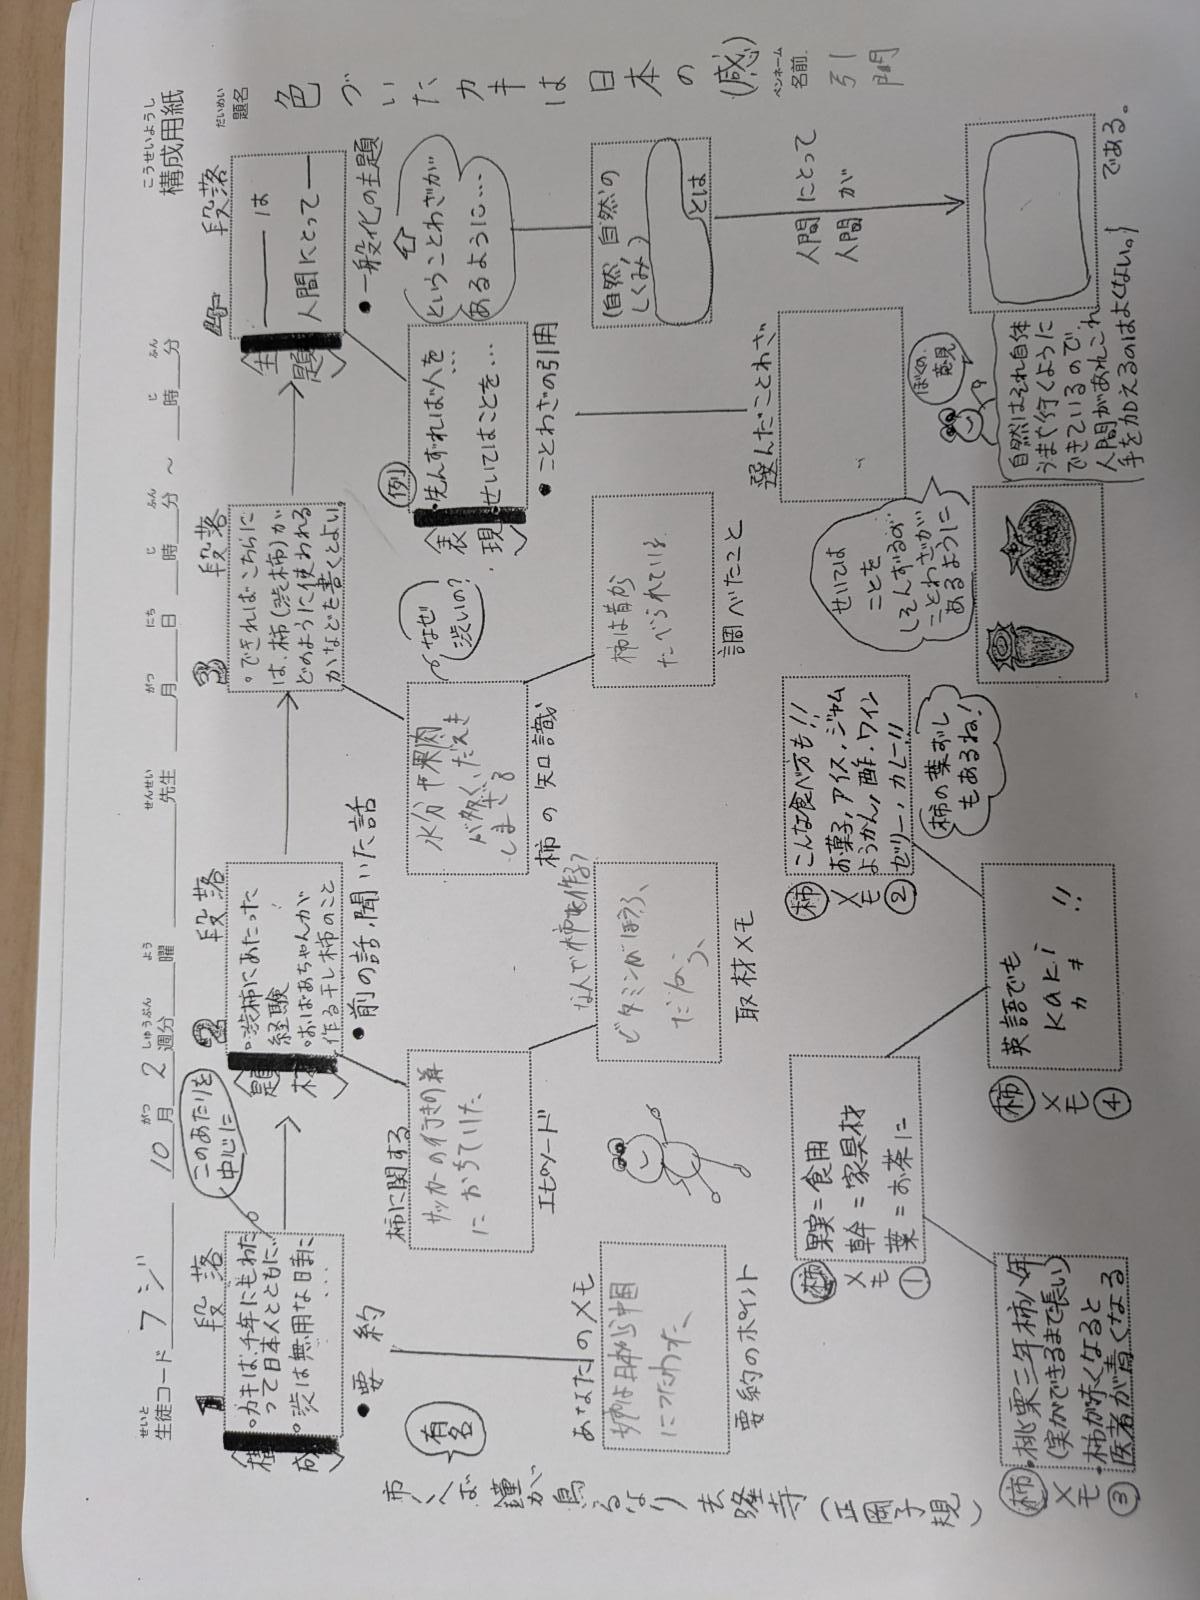 こうせいようし
構成用紙
せいと
生徒コード フジ
がつ しゅうぶん よう
10月2週分 曜
せんせい
先生
がつ にち じ ふん じ ふん
月 日 時 分 ~ 時 分
だいめい
題名
色づいたカキは日本の(感)
ペンネーム
名前
引間
1 段落
構成
・カキは、千年にもわた
って日本人とともに…
・渋は無用な日まに
・・・
このあたりを
中心に
・要約
有名
あなたのメモ
につたわった、
要約のポイント
2 段落
題材
・渋柿にあたった
経験
・おばあちゃんが
作る干し柿のこと
・前の話、聞いた話
柿に関する
サッカーの行きの前
におちていた
エピソード
なんで柿を作る?
ビタミンがほうふ、
取材メモ
3 段落
・できればこちらに
は、柿(渋柿)が
どのように使われる
かなどを書くとよい。
なぜ
渋いの?
水分や果肉
が多く、だえき
柿の知識
柿は昔から
たべられている
調べたこと
4 段落
主題
――は
人間にとって――
・一般化の主題
ということわざが
あるように…
表現
例
・先んずれば人を…
・せいてはことを…
・ことわざの引用
選んだことわざ
(自然、自然の
しくみ)
とは
人間にとって
人間が
である。
せいては
ことを
しそんずるの…
ことわざが…
あるように
ぼくの
意見
自然はそれ自体
うまく行くように
できているので
人間があれこれ
手を加えるのはよくない。
柿メモ①
果実=食用
幹=家具材
葉=お茶に
柿メモ②
こんな食べ方も!!
お菓子,アイス,ジャム
ようかん,酢,ワイン
ゼリー,カレー!!
柿の葉ずし
もあるね!
柿メモ③
・桃栗三年柿八年
(実ができるまで長い)
・柿が赤くなると
医者が青くなる
柿メモ④
英語でも
kaki !!
カキ
鐘が
寺(正岡子規)